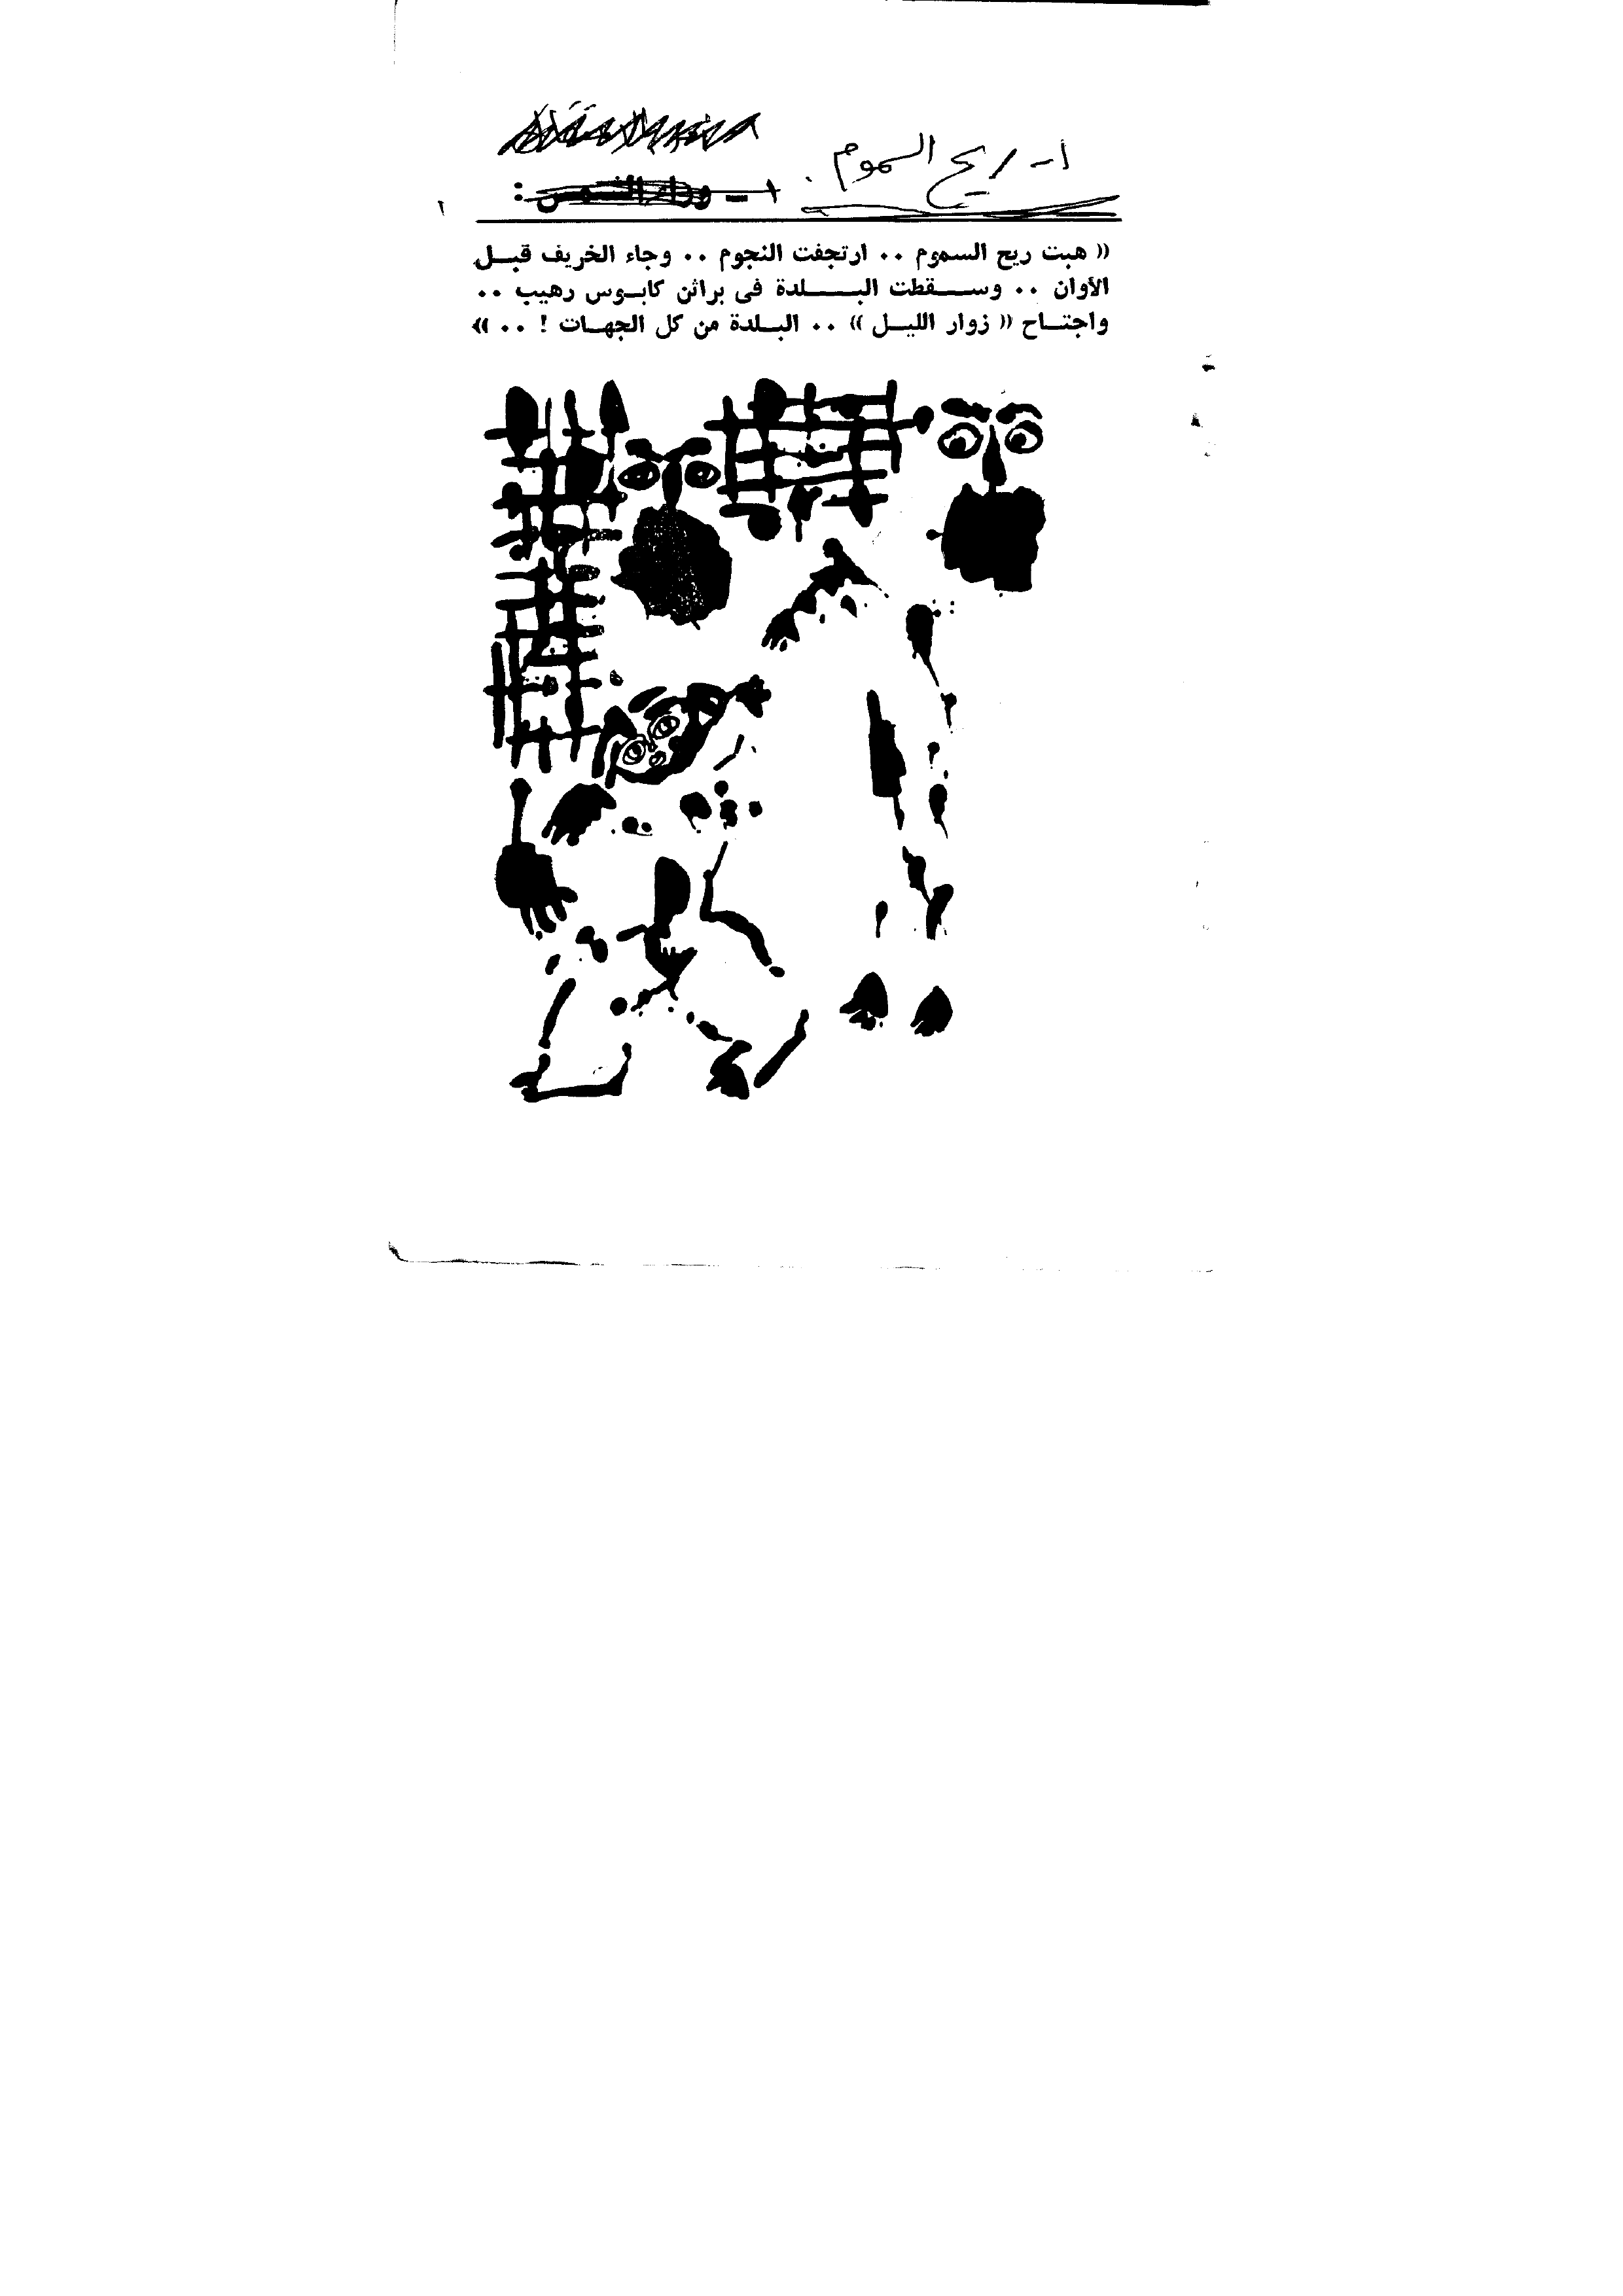 ١- ريح السموم.
١ - وراء الشمس :
« هبت ريح السموم .. ارتجفت النجوم .. وجاء الخريف قبل
الأوان .. وسقطت البلدة فى براثن كابوس رهيب ..
واجتاح « زوار الليل » .. البلدة من كل الجهات ! .. »